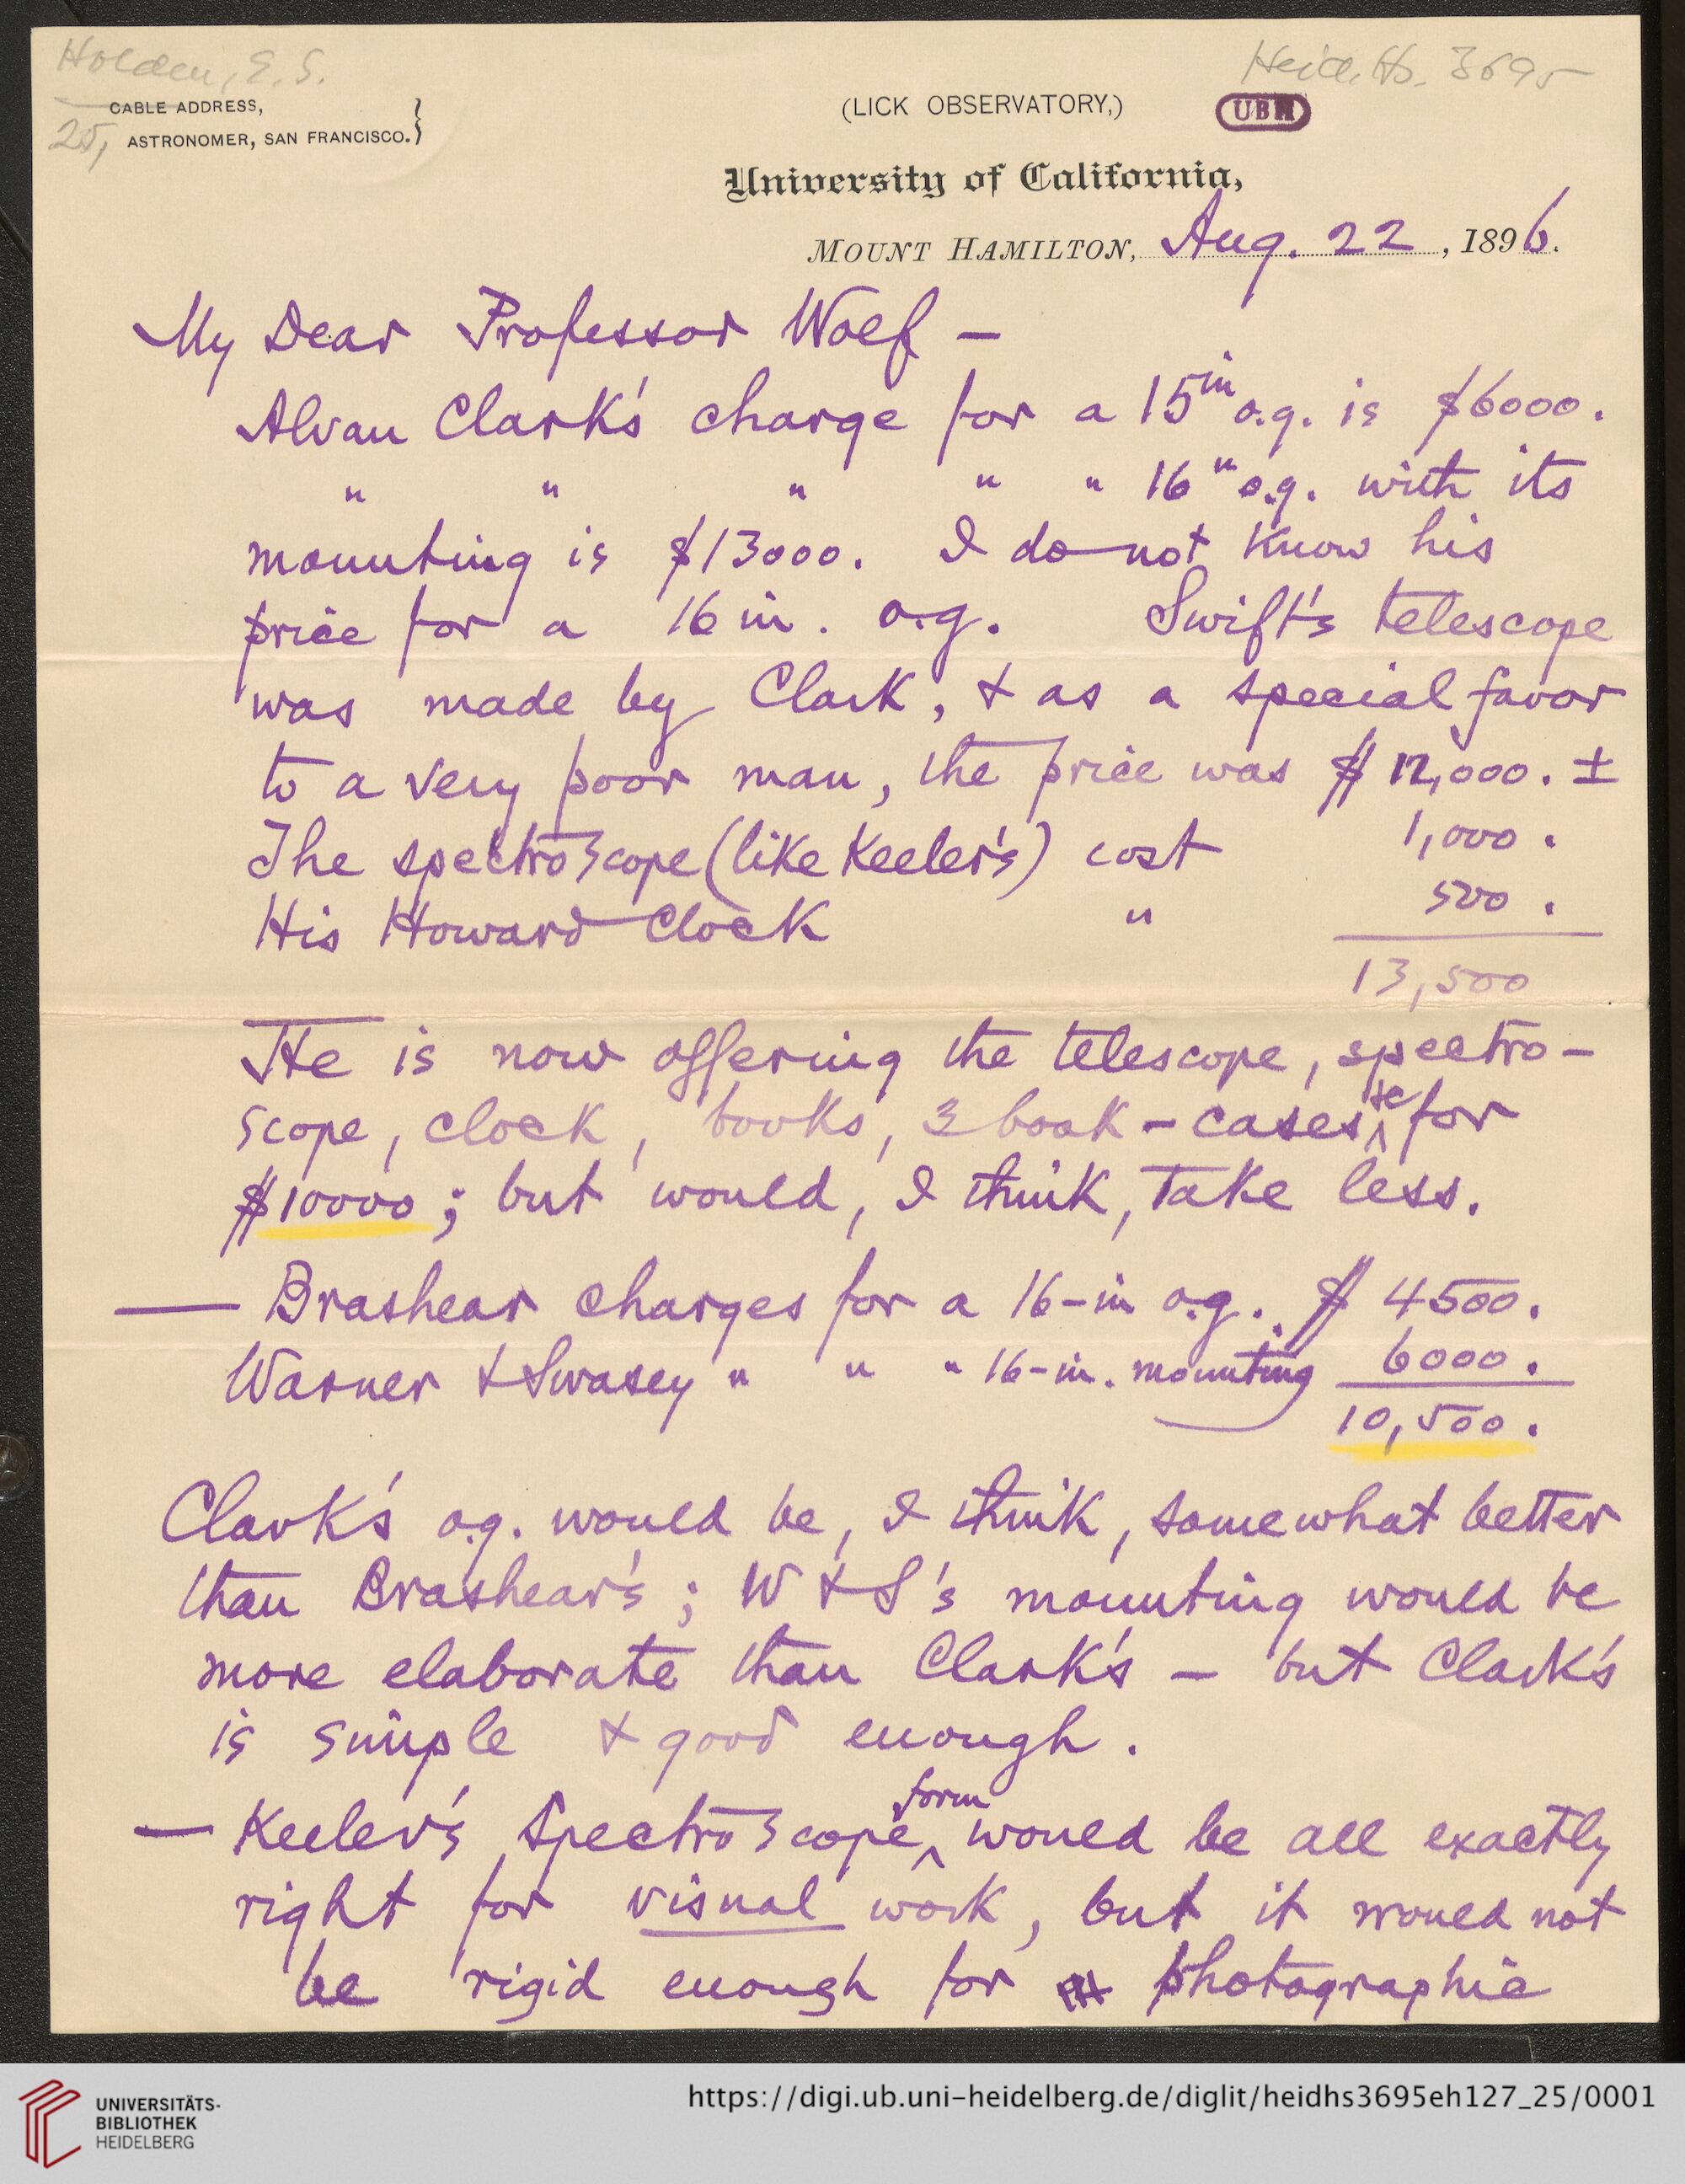 Holden, E. S.
Heid. Hs. 3695
CABLE ADDRESS,
25,
ASTRONOMER, SAN FRANCISCO.}
(LICK OBSERVATORY,)
UBH
University of California,
MOUNT HAMILTON, Aug. 22, 1896.
My Dear Professor Wolf —
Alvan Clark's charge for a 15in o.g. is $6000.
" " " " " 16" o.g. with its
mounting is $13000. I do not know his
price for a 16 in. o.g. Swift's telescope
was made by Clark, & as a special favor
to a very poor man, the price was $ 12,000. ±
The spectroscope (like Keeler's) cost 1,000.
His Howard Clock " 500.
13,500
He is now offering the telescope, spectro-
scope, clock, books, 3 book-cases &c for
$10000; but would, I think, take less.
— Brashear charges for a 16-in o.g. $ 4500.
Warner & Swasey " " " 16-in. mounting 6000.
10,500.
Clark's o.g. would be, I think, somewhat better
than Brashear's; W & S's mounting would be
more elaborate than Clark's — but Clark's
is simple & good enough.
— Keeler's spectroscope form would be all exactly
right for visual work, but it would not
be rigid enough for photographic
UNIVERSITÄTS-
BIBLIOTHEK
HEIDELBERG
https://digi.ub.uni-heidelberg.de/diglit/heidhs3695eh127_25/0001